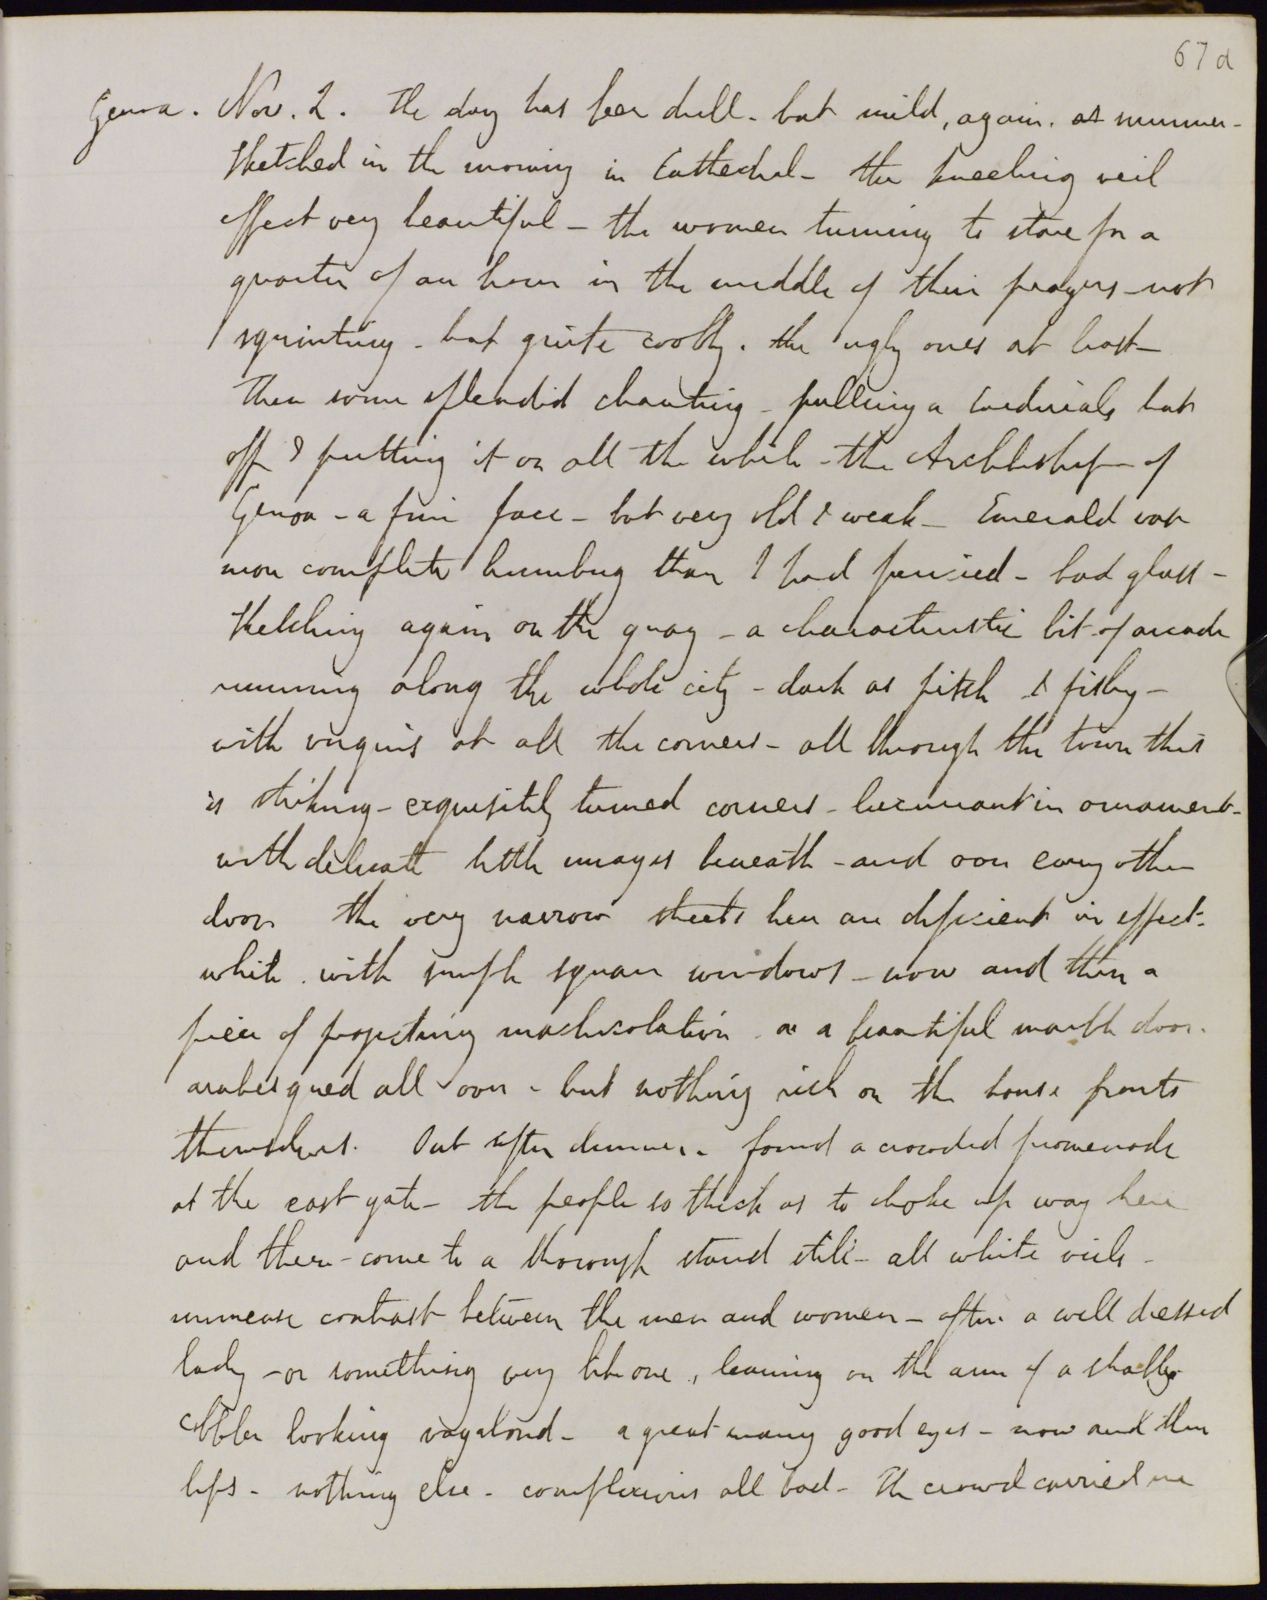 67 d
Genoa. Nov. 2. The day has been dull - but mild, again. as summer -
Sketched in the morning in Cathedral - the kneeling veil
effect very beautiful - the women turning to stare for a
quarter of an hour in the middle of their prayers - not
squinting - but quite coolly. the ugly ones at least -
Then some splendid chanting - pulling a Cardinals hat
off & putting it on all the while - the Archbishop of
Genoa - a fine face - but very old & weak - Emerald vase
more complete humbug than I had fancied - bad glass -
Sketching again on the quay - a characteristic bit of arcade
running along the whole city - dark as pitch & fishy -
with virgins at all the corners - all through the town this
is striking - exquisitely turned corners - luxuriant in ornament -
with delicate little images beneath - and over every other
door the very narrow streets here are deficient in effect.
white. with simple square windows - now and then a
piece of projecting machicolation or a beautiful marble door.
arabesqued all over - but nothing rich on the house fronts
themselves. Out after dinner. found a crowded promenade
at the east gate - the people so thick as to choke up way here
and there - come to a thorough stand still - all white veils -
immense contrast between the men and women - often a well dressed
lady - or something very like one, leaning on the arm of a shabby
cobbler looking vagabond - a great many good eyes - now and then
lips - nothing else - complexions all bad - The crowd carried me